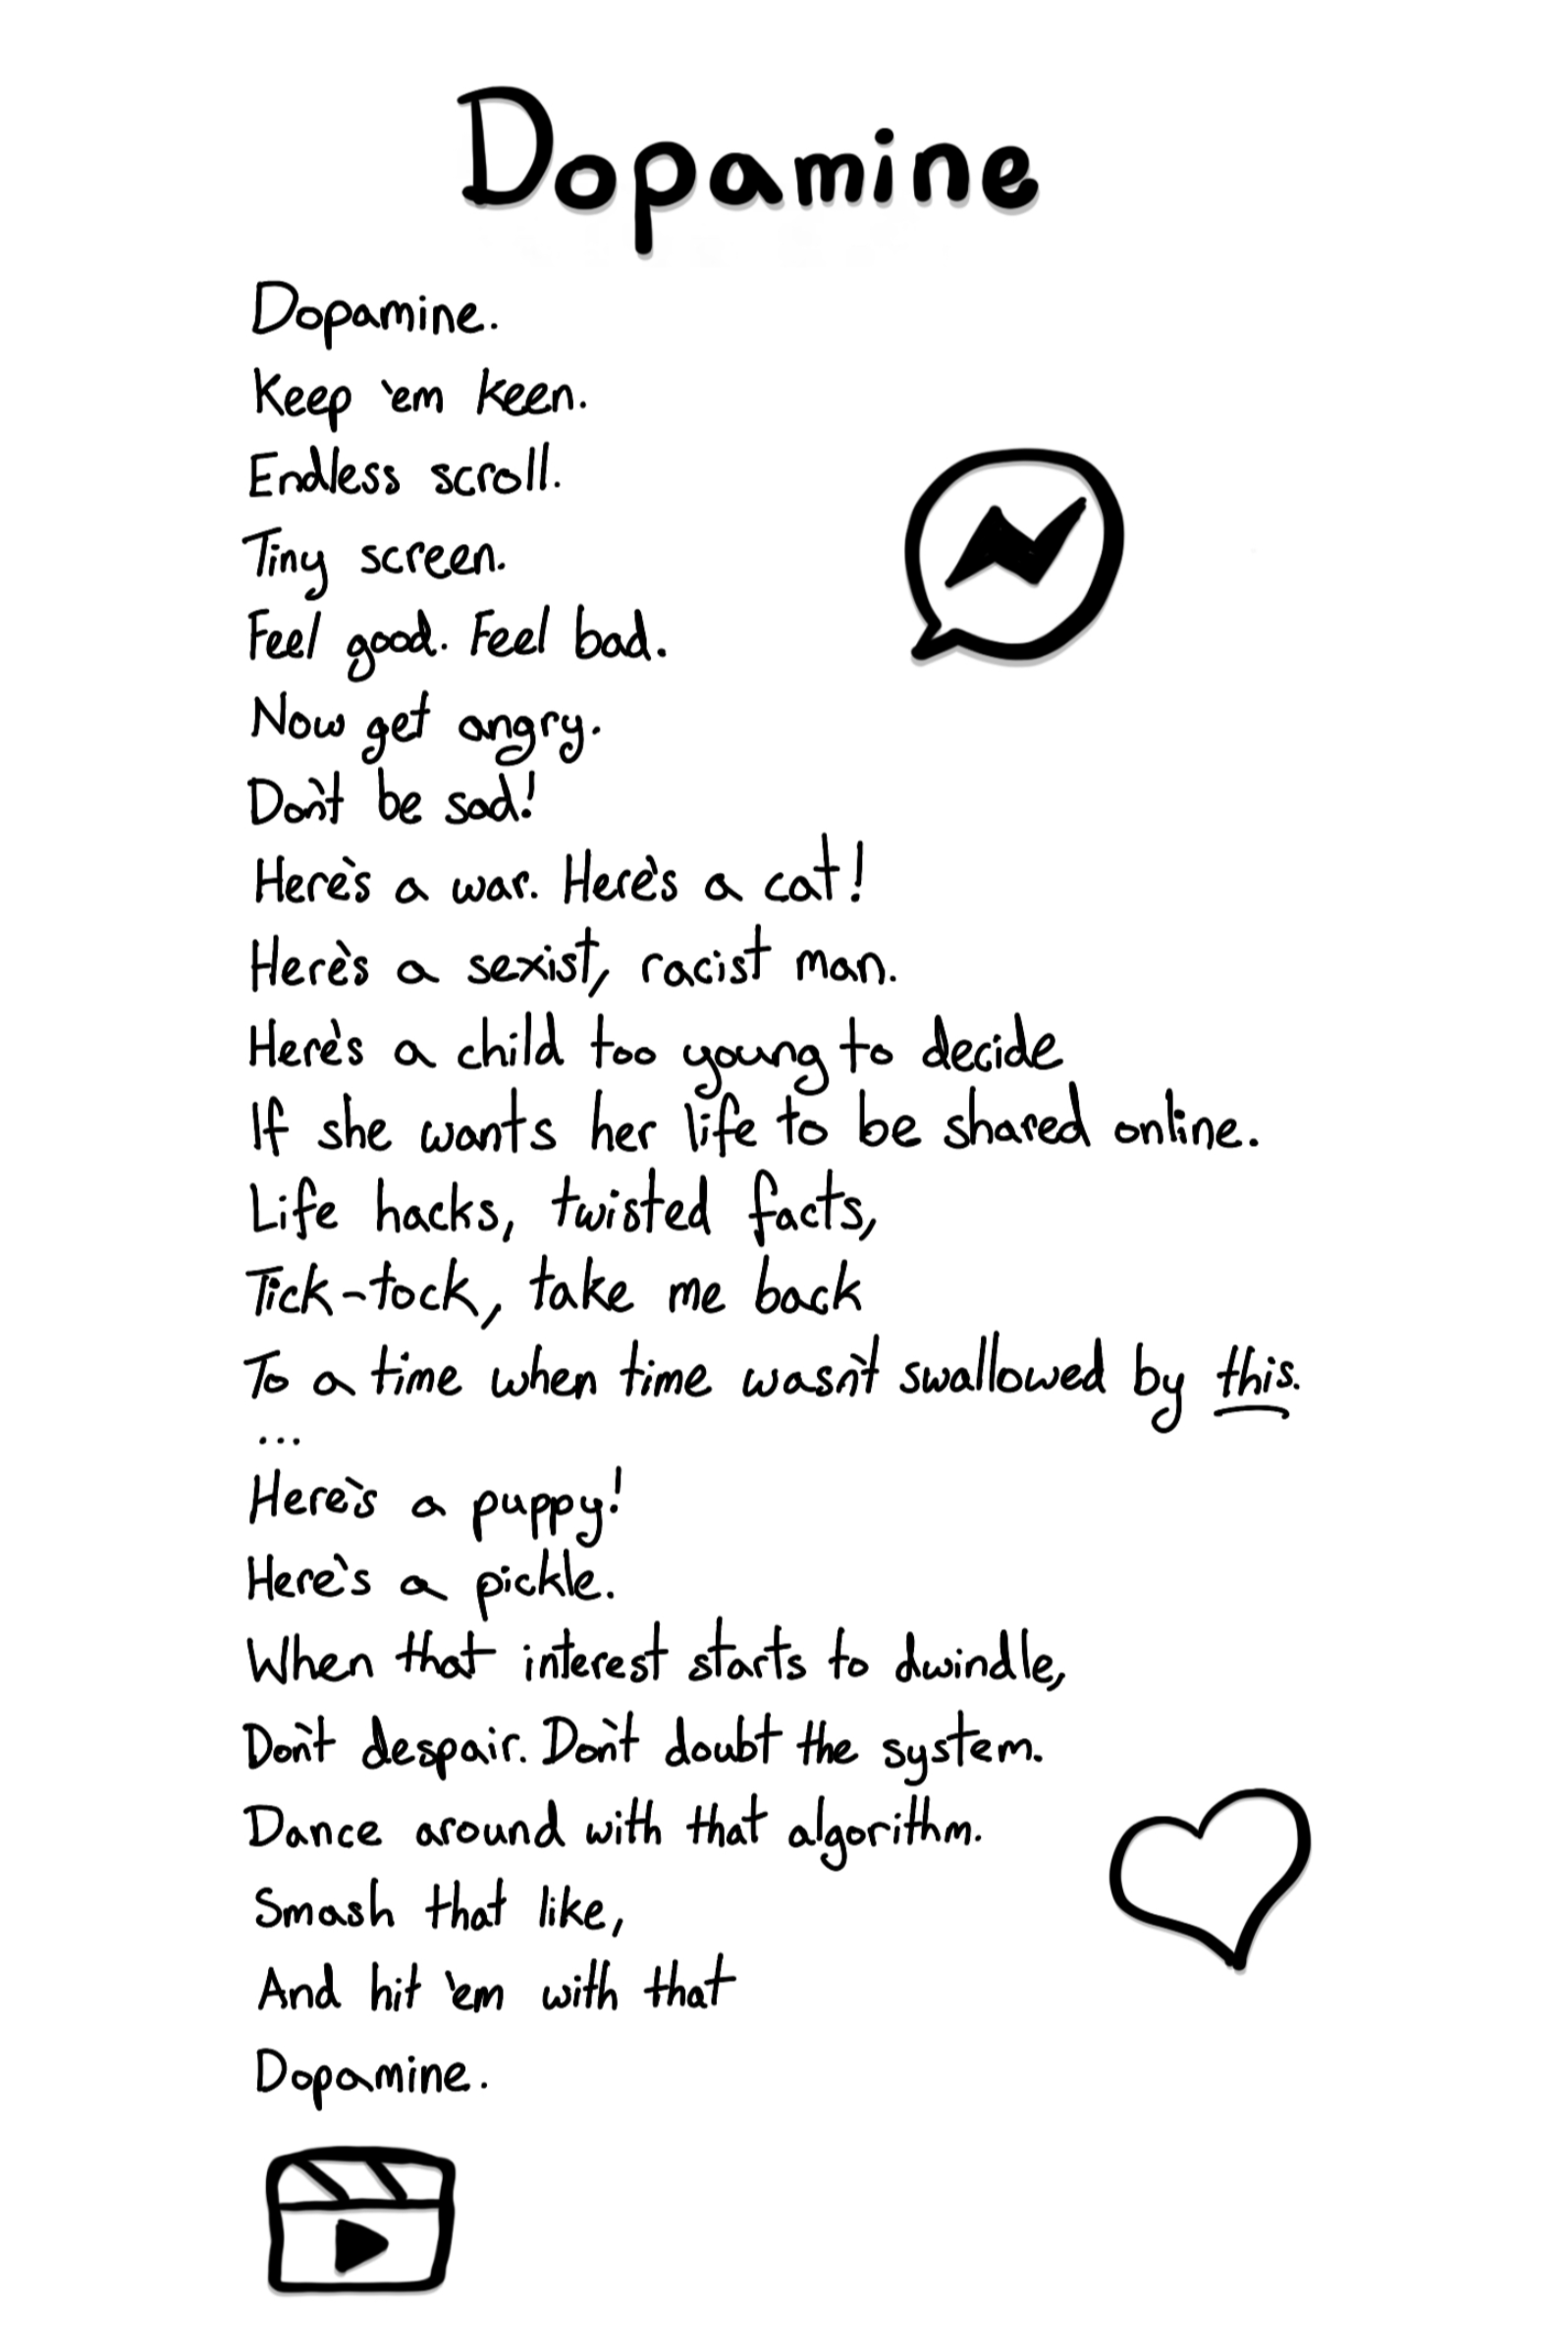 Dopamine
Dopamine.
Keep 'em keen.
Endless scroll.
Tiny screen.
Feel good. Feel bad.
Now get angry.
Don't be sad!
Here's a war. Here's a cat!
Here's a sexist, racist man.
Here's a child too young to decide
If she wants her life to be shared online.
Life hacks, twisted facts,
Tick-tock, take me back
To a time when time wasn't swallowed by this.
...
Here's a puppy!
Here's a pickle.
When that interest starts to dwindle,
Don't despair. Don't doubt the system.
Dance around with that algorithm.
Smash that like,
And hit 'em with that
Dopamine.